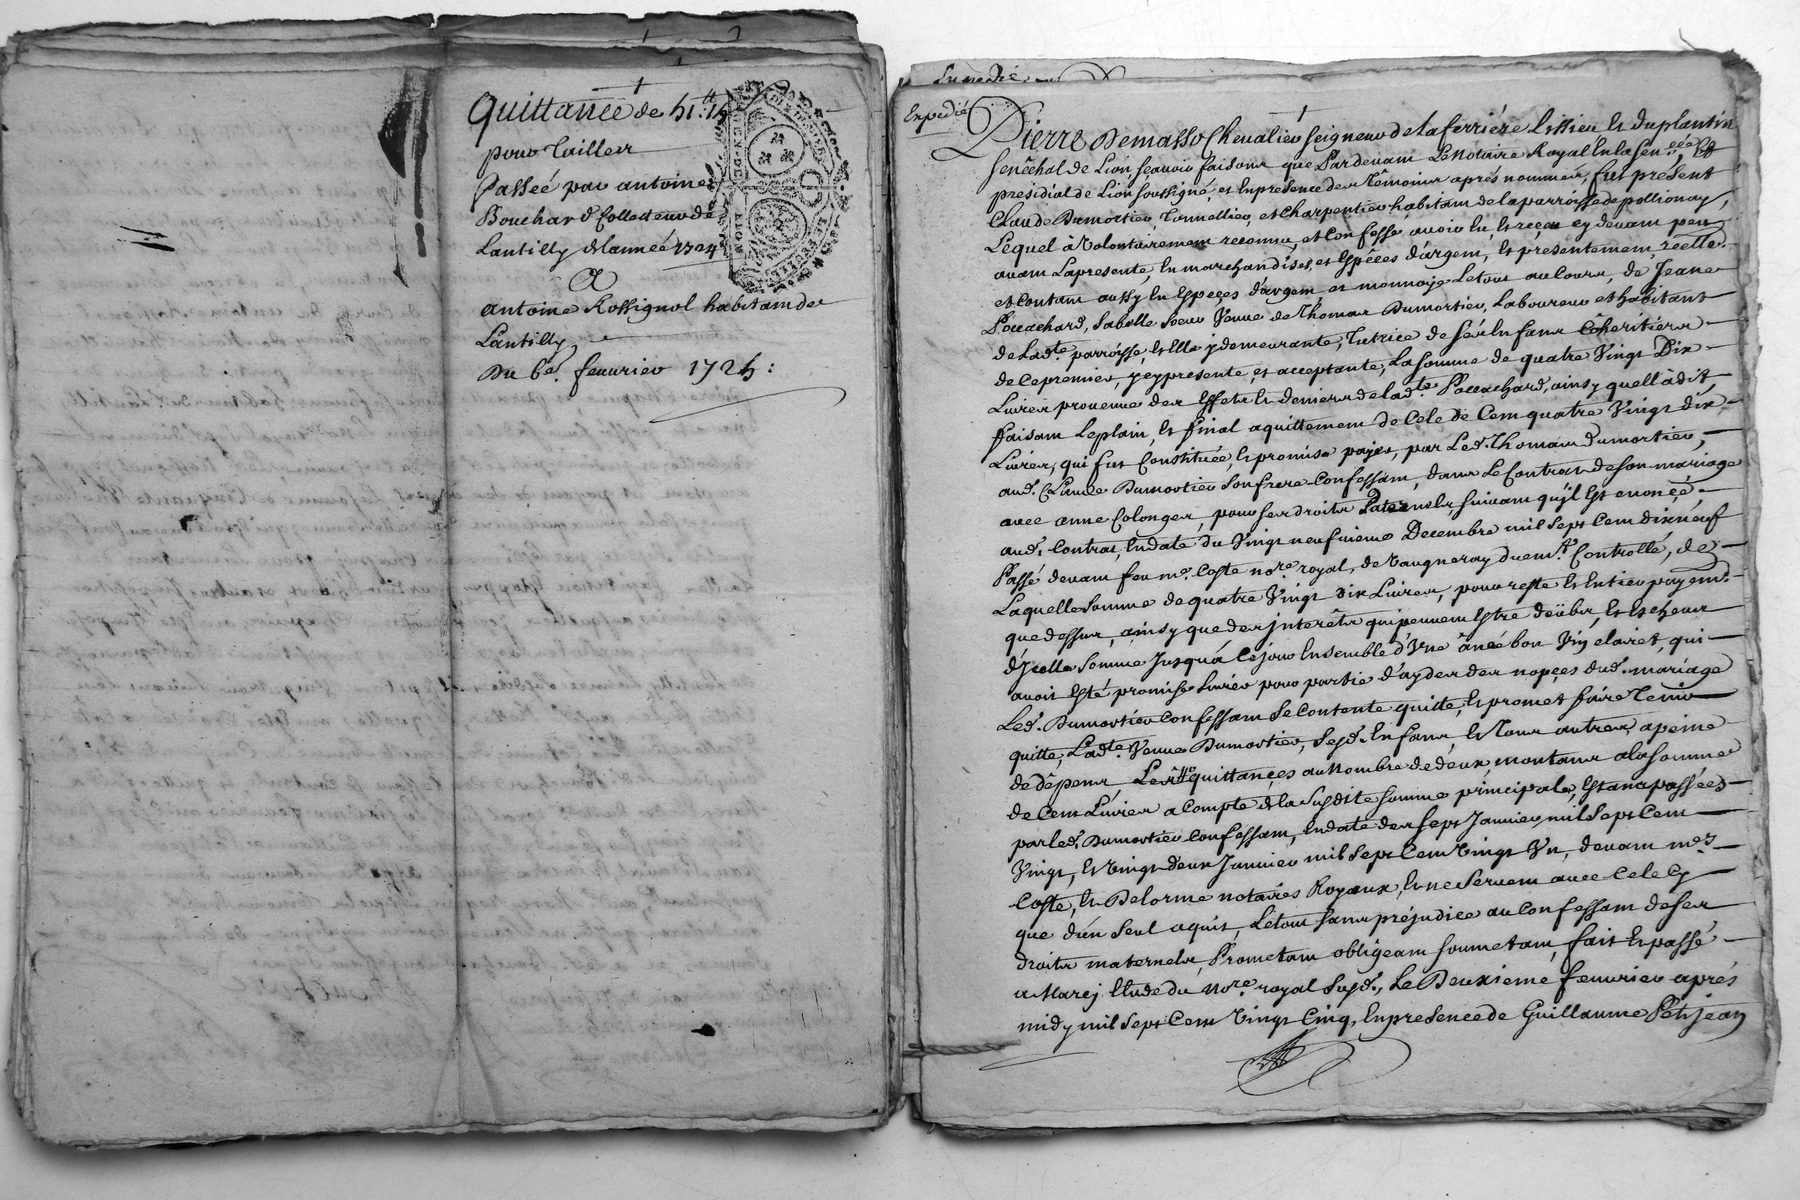 Quittance de 51.tt 15
pour Tailles
Passée par antoine
Bouchard Collecteur de
Lantilly de lannée 1724
A
antoine Rossignol habitant de
Lantilly
Du 6e. feuvrier 1725:
Expedié
Expedié
Pierre Demasso Chevalier Seigneur de la ferriere Lissieu et du plantin
Senêchal de Lion, scavoir faisons que Pardevant Le Notaire Royal En la Sen.ceé Et
presidial de Lion soussigné, et En presence des têmoins aprés nommés, fut present
Claude Dumortier Tonnellier, et Charpentier habitant de la parroisse de pollionay,
Lequel à Volontairement reconnu, et Confessé avoir Eu, Et reçeu cy devant peu
avant La presente, En marchandises, et Espéces d'argent, Et presentement, reelle.
et Contant aussy En Espeçes d'argent et monnoye Le tout au Cours, de Jeane
Poccachard, sa belle Soeur Veuve de Thomas Dumortier, Laboureur et habitant
de Ladte. parroisse, Et Elle y demeurante, Tutrice de Ses Enfans Cöheritiers
de Ce premier, y cy presente, et acceptante, La somme de quatre Vingt Dix
Livres provenue des Effets Et deniers de lad.te Poccachard, ainsy quell' à dit,
faisant Le plain, Et final aquittement de Cele de Cent quatre Vingt dix
Livres, qui fut Constituée, Et promise payer, par Led. Thomas Dumortier,
aud. Claude Dumortier Son frere Confessant, dans Le Contrat de Son mariage
avec anne Colonges, pour ses droits Paternels, suivant qu'il Est enonçé,
aud. Contrat, En date du Vingt neufvieme Decembre mil Sept Cent dix neuf
Passé devant feu me. Coste no.re royal, de Vaugneray duem.t Controllé, de
Laquelle Somme de quatre Vingt Dix Livres, pour reste Et Entier payem.t
que dessus, ainsy que des Interêts qui peuvent Estre deübs, Et Escheus
d'Jcelle Somme Jusqu'á Ce jour Ensemble d'Vne ânée bon Vin clairet, qui
avoit Esté promise Livrer pour partie d'ayder des nopçes dud. mariage
Led. Dumortier Confessant Se Contente quitte, Et promet faire Tenir
quitte, Ladte. Veuve Dumortier, Sesd. Enfans Et Tous autres, a peine
de dêpens, Les quittançes au Nombre de deux, montans a la somme
de Cent Livres a Compte de la Susdite Somme principale, Estans passées
par led. Dumortier Confessant, En date des sept Janvier, mil Sept Cent
Vingt, Et Vingt deux Janvier mil Sept Cent Vingt Vn, devant mes
Coste, Et Delorme notaires Royaux, Et ne Servent avec Cele Cy
que d'un Seul aquit, Le tout sans préjudice au Confessant de Ses
droits maternels, Prometant obligeant soumetant, fait Et passé
a Marcj Etude du No.re royal Susd., Le Deuxieme feuvrier aprés
midy mil sept Cent Vingt Cinq, En presence de Guillaume Petijean